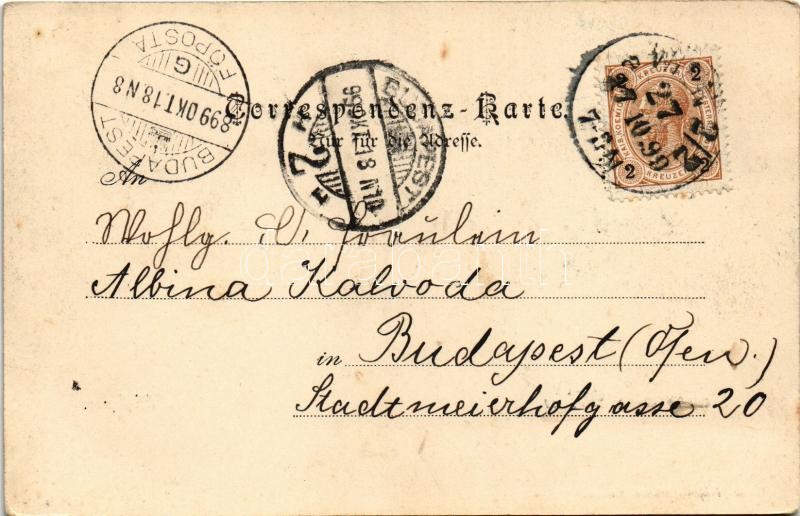 Correspondenz-Karte.
Nur für die Adresse.
BUDAPEST
FŐPOSTA
G
899 OKT. 18 N 8
BUDAPEST
2
KREUZER
2
KREUZER
2
27
10.99
An
Wohlg. Fräulein
Albina Kalvoda
in Budapest (Ofen.)
Stadtmeierhofgasse 20
darabanth